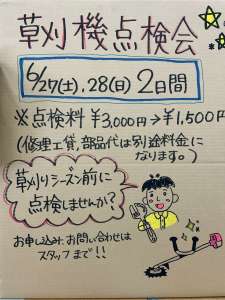 草刈機点検会
6/27(土),28(日) 2日間
※点検料 ¥3,000円→¥1,500円
(修理工賃,部品代は別途料金に
なります。)
草刈りシーズン前に
点検しませんか?
お申し込み、お問い合わせは
スタッフまで!!